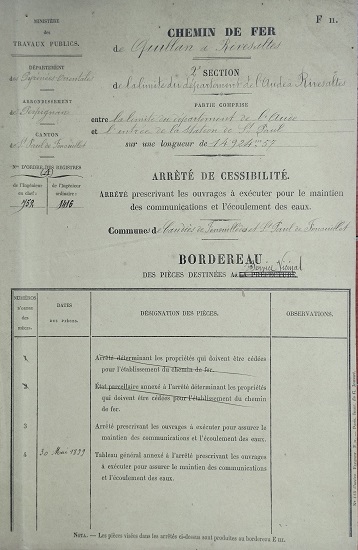 MINISTÈRE
DES
TRAVAUX PUBLICS.
DÉPARTEMENT
des Pyrénées Orientales
ARRONDISSEMENT
de Perpignan
CANTON
de St Paul de Fenouillet
Nos D'ORDRE DES REGISTRES
(A)
de l'Ingénieur en chef :
de l'Ingénieur ordinaire :
752
1816
F II.
CHEMIN DE FER
de Quillan à Rivesaltes
2e SECTION
de la limite du département de l'Aude à Rivesaltes
PARTIE COMPRISE
entre la limite du département de l'Aude
et l'entrée de la station de St Paul
sur une longueur de 14924m57
ARRÊTÉ DE CESSIBILITÉ.
ARRÊTÉ prescrivant les ouvrages à exécuter pour le maintien
des communications et l'écoulement des eaux.
Commune de Caudiès de Fenouillèdes et St Paul de Fenouillet
BORDEREAU
Service Vicinal
DES PIÈCES DESTINÉES A LA PRÉFECTURE
NUMÉROS
D'ORDRE
DES
PIÈCES.
DATES
DES PIÈCES.
DÉSIGNATION DES PIÈCES.
OBSERVATIONS.
1
Arrêté déterminant les propriétés qui doivent être cédées
pour l'établissement du chemin de fer.
2
État parcellaire annexé à l'arrêté déterminant les propriétés
qui doivent être cédées pour l'établissement du chemin
de fer.
3
Arrêté prescrivant les ouvrages à exécuter pour assurer le
maintien des communications et l'écoulement des eaux.
4
30 Mai 1899
Tableau général annexé à l'arrêté prescrivant les ouvrages
à exécuter pour assurer le maintien des communications
et l'écoulement des eaux.
NOTA. — Les pièces visées dans les arrêtés ci-dessus sont produites au bordereau E III.